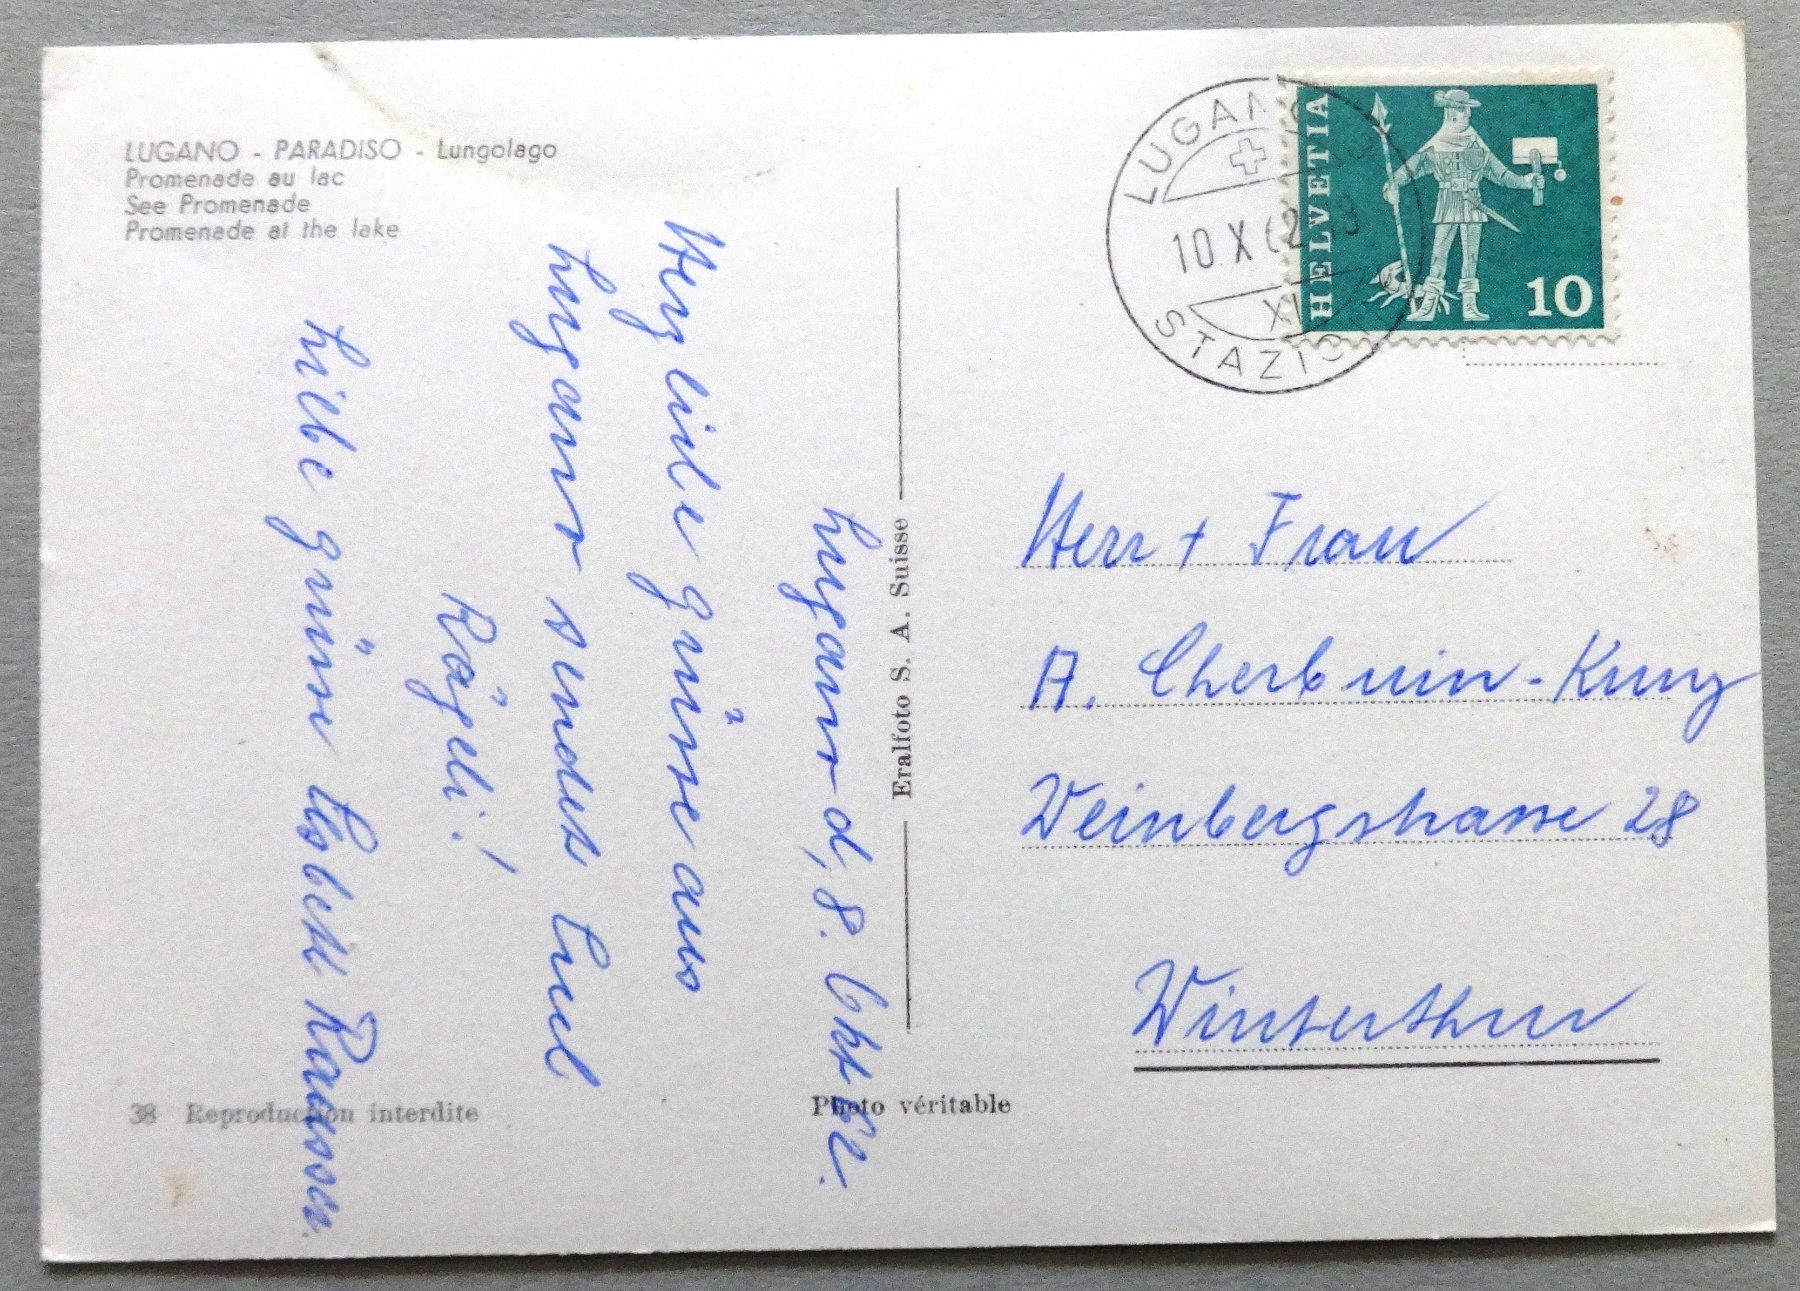 LUGANO - PARADISO - Lungolago
Promenade au lac
See Promenade
Promenade at the lake
Lugano d, 8. Okt 62.
Herzliche grüsse aus
Lugano sendet Euch
Rägeli!
Liebe grüsse Elsbeth
38 Reproduction interdite
Eralfoto S. A. Suisse
Photo véritable
LUGANO
10.X.62
XI
STAZIO
HELVETIA
10
Herr + Frau
A. Cherbuin-Kunz
Weinbergstrasse 28
Winterthur